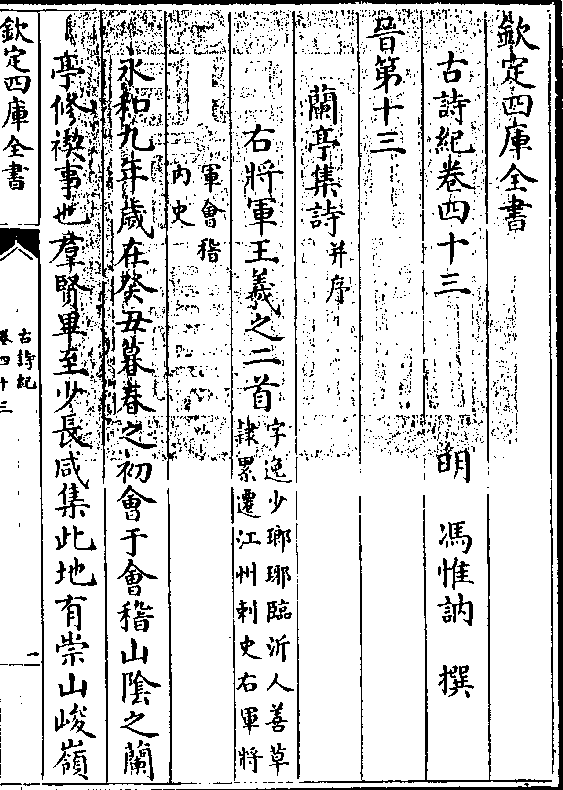 欽定四庫全書
古詩紀卷四十三
明 馮惟訥 撰
晉第十三
蘭亭集詩并序
右將軍王羲之二首字逸少瑯琊臨沂人善草
隸累遷江州刺史右軍將
軍會稽
內史
永和九年歲在癸丑暮春之初會于會稽山陰之蘭
亭修禊事也羣賢畢至少長咸集此地有崇山峻嶺
欽定四庫全書
古詩紀
卷四十三
一